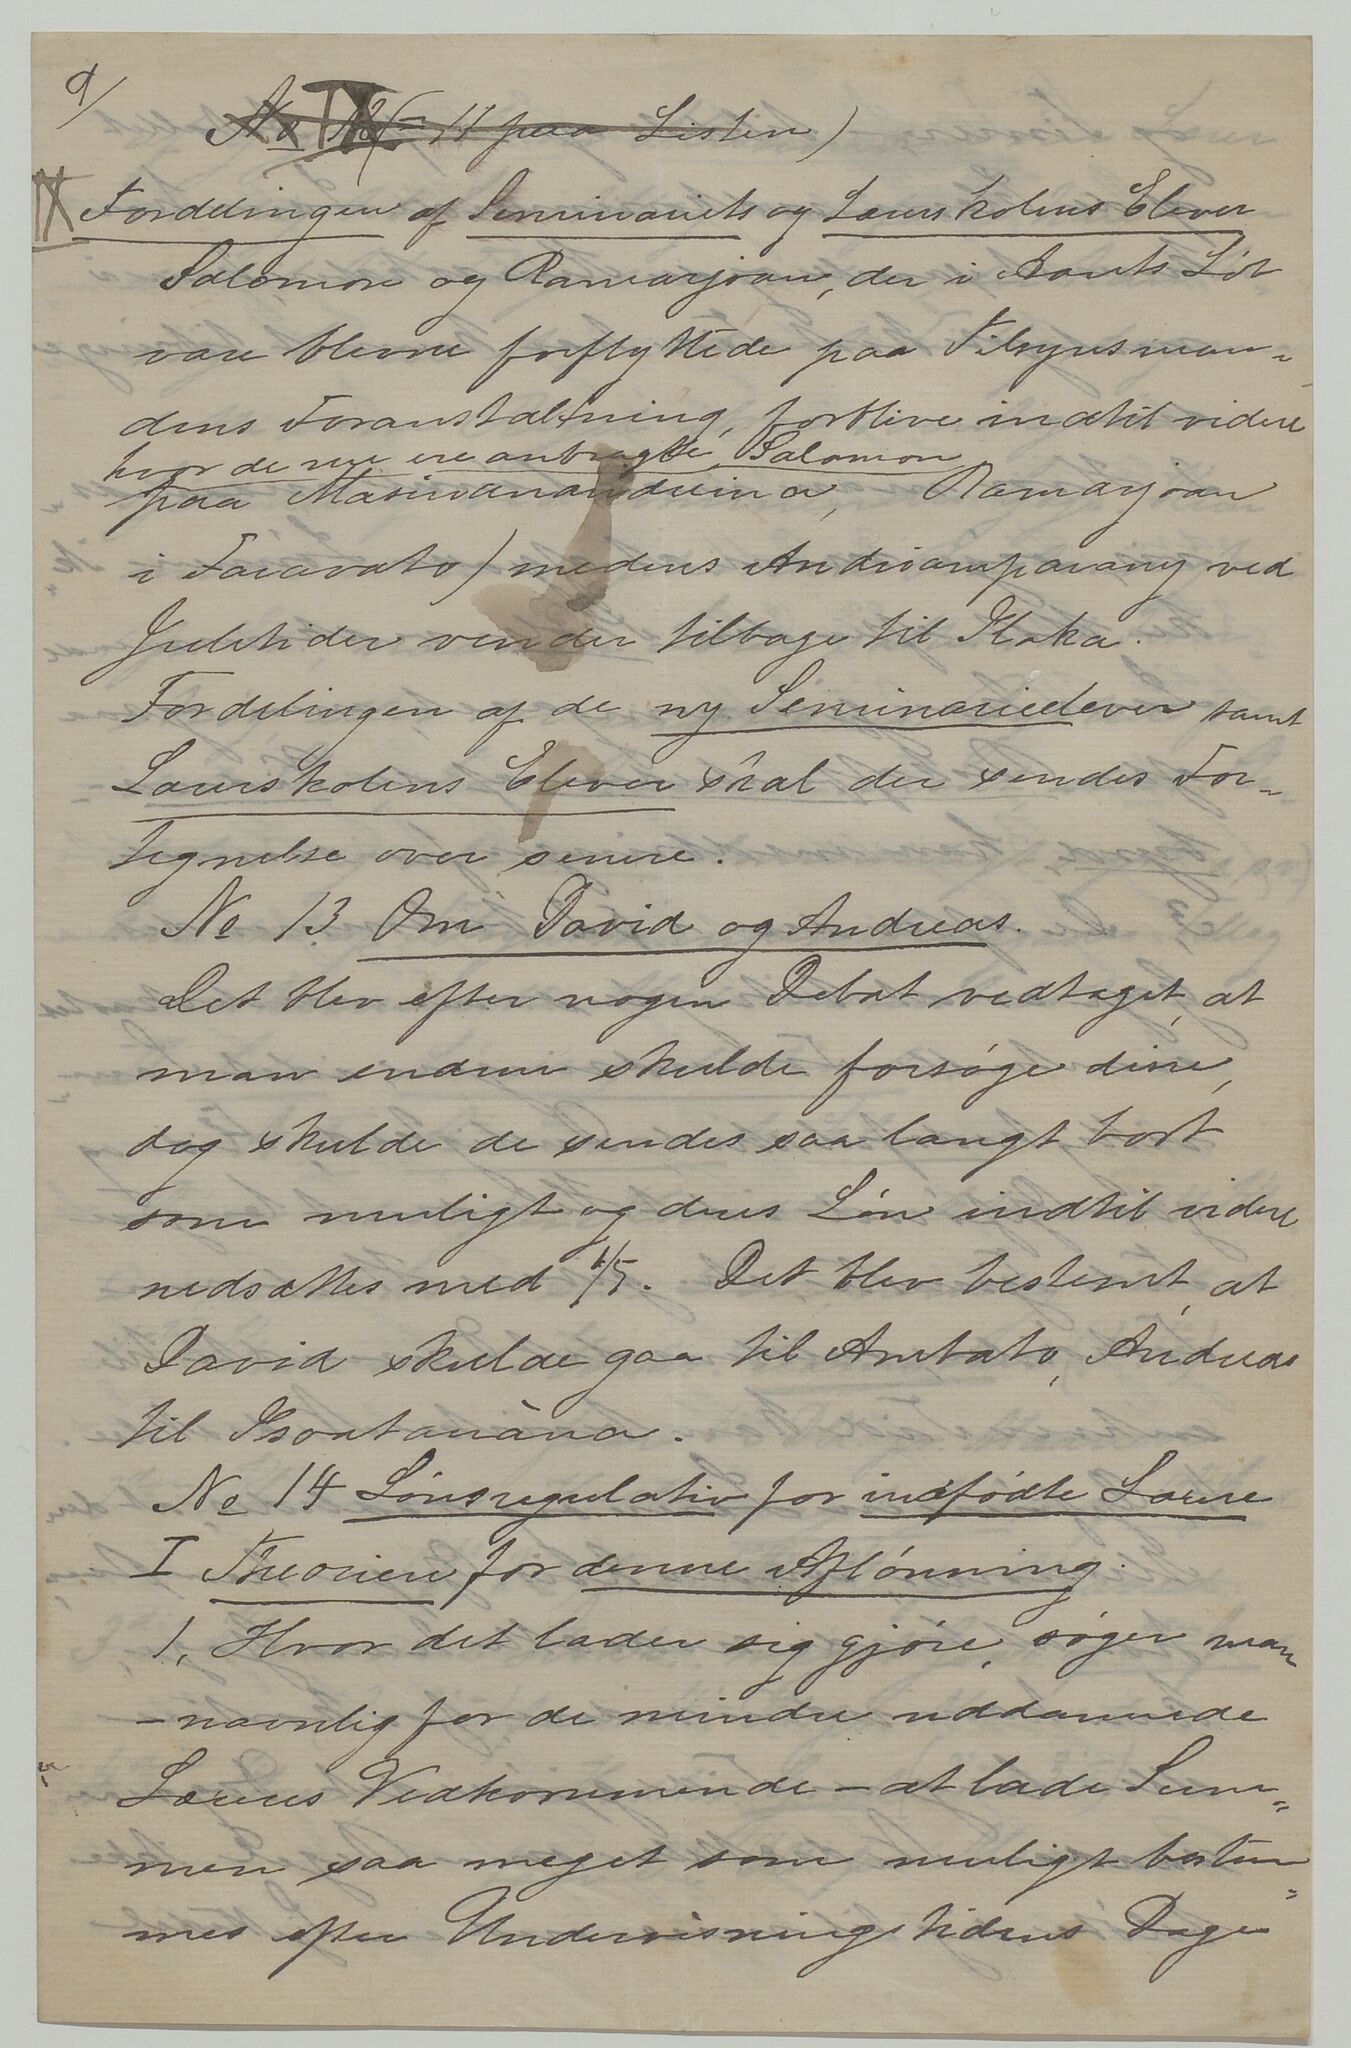 9/
No IX (= 11 paa Listen)
IX Fordelingen af Seminariets og Lærerskolens Elever
Salomon og Ramarjoan, der i Aarets Løb
vare blevne forflyttede paa Tilsynsman-
dens Foranstaltning, forblive indtil videre
hvor de nu ere anbragte, Salomon
paa Masinanandreina, Ramarjoan
i Faravato) medens Andriamparany ved
Juletider vender tilbage til Ilaka.
Fordelingen af de ny Seminarieelever samt
Lærerskolens Elever skal der sendes For-
tegnelse over senere.
No 13 Om David og Andreas.
Det blev efter nogen Debat vedtaget, at
man endnu skulde forsøge disse,
dog skulde de sendes saa langt bort
som muligt og deres Løn indtil videre
nedsættes med 1/5. Det blev bestemt, at
David skulde gaa til Ambato, Andreas
til Isoatanàna.
No 14 Lønsregulativ for indfødte Lærere
I Theorien for denne Aflønning.
1, Hvor det lader sig gjøre, søger man
- navnlig for de mindre uddannede
Læreres Vedkommende - at lade Sum-
men saa meget som muligt bestem-
mes efter Undervisningstidens Dage